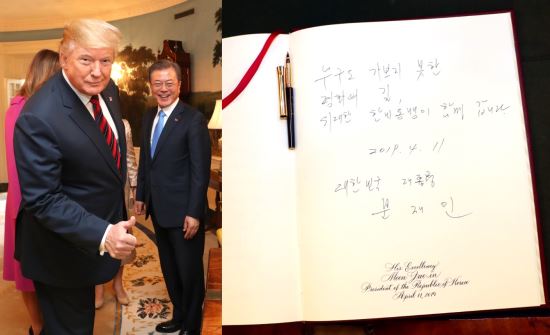 누구도 가보지 못한
평화의 길,
위대한 한미동맹이 함께 갑니다.
2019. 4. 11
대한민국 대통령
문 재 인
His Excellency
Moon Jae-in
President of the Republic of Korea
April 11, 2019